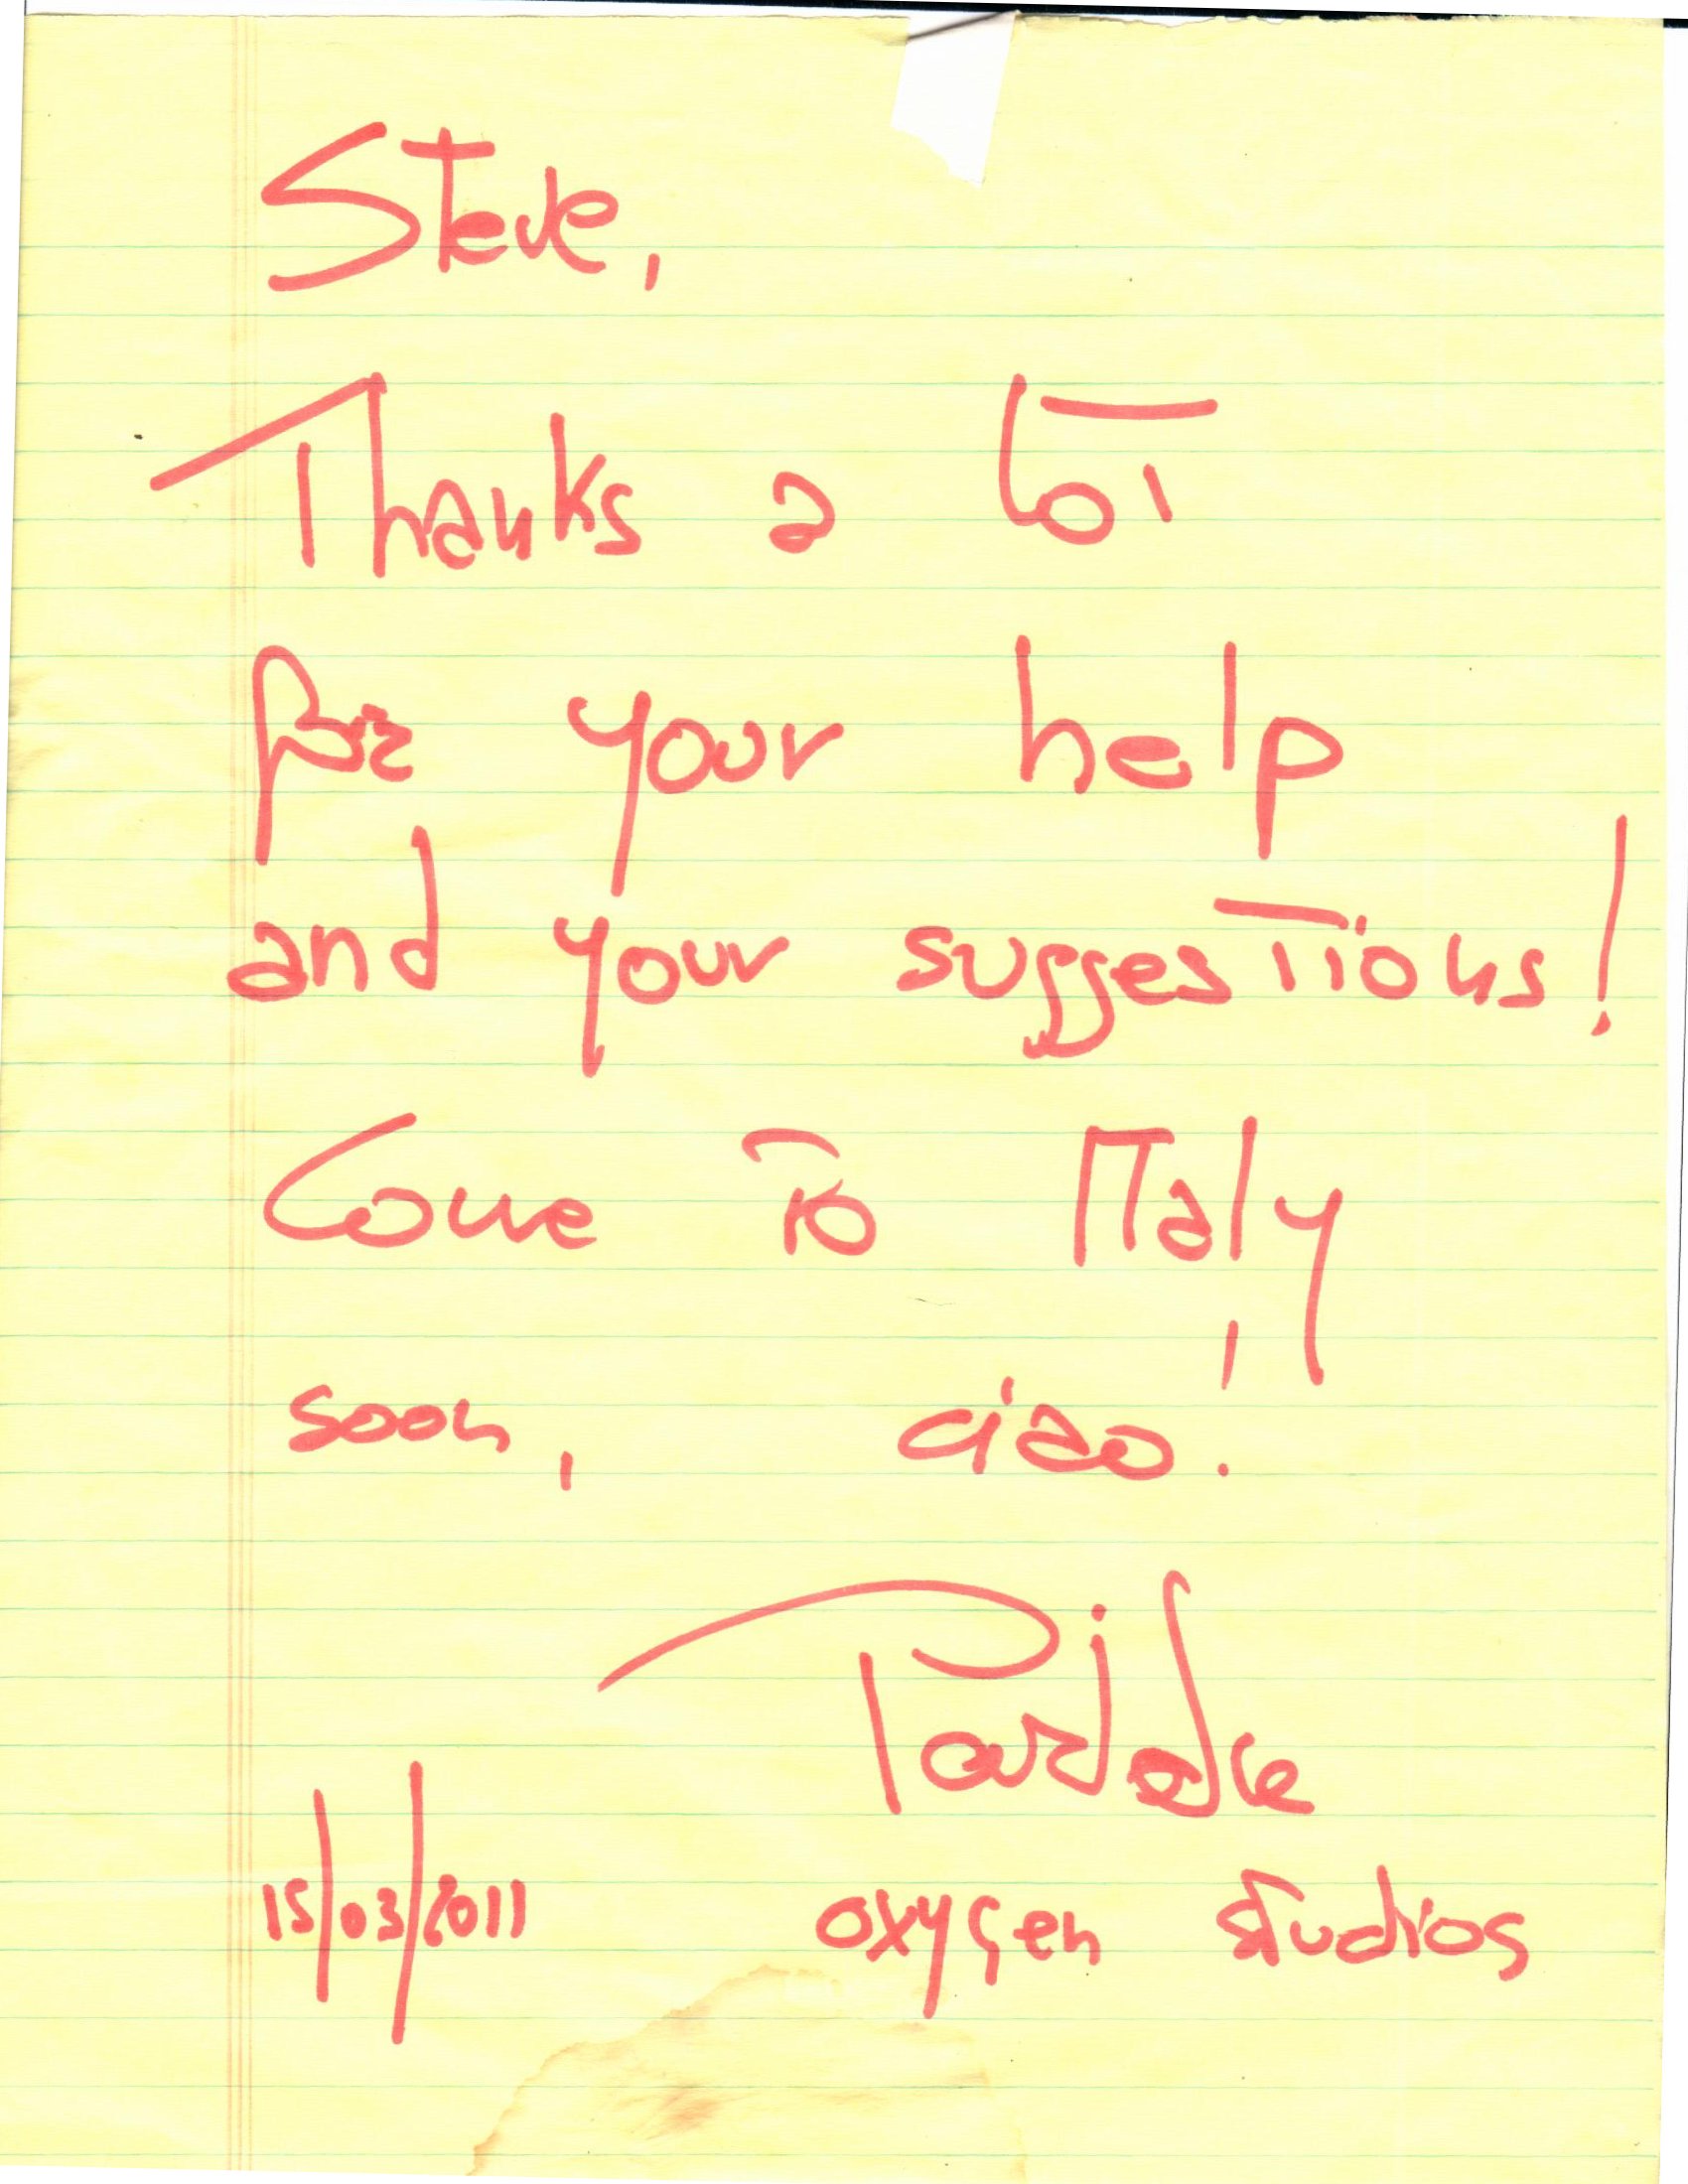 Steve,
Thanks a lot
for your help
and your suggestions!
Come to Italy
soon, ciao!
15/03/2011 oxygen studios